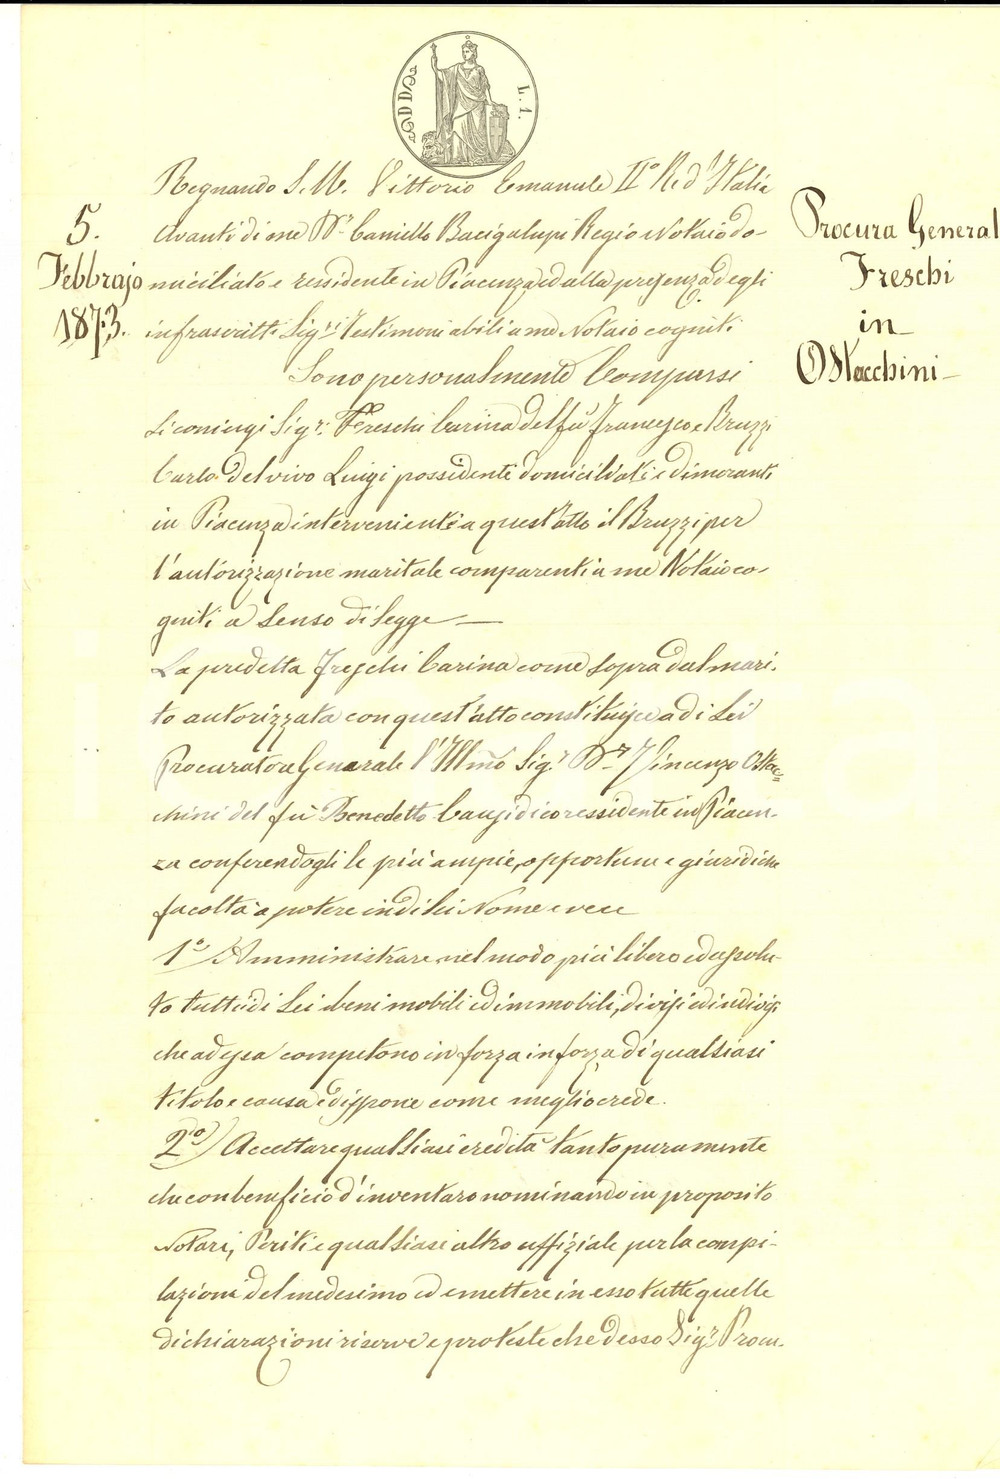 L. 1.
Regnando S. M. Vittorio Emanuele II° Re d'Italia
Avanti di me Dr. Camillo Bacigalupi Regio Notaio do-
miciliato e ressidente in Piacenza ed alla presenza degli
infrascritti Sigri. Testimoni abili a me Notaio cogniti
5.
Febbrajo
1873.
Procura General
Freschi
in
Ostacchini
Sono personalmente Comparsi
Li coniugi Sigri. Freschi Carina del fu Francesco e Bruzzi
Carlo del vivo Luigi possidenti domiciliati e dimoranti
in Piacenza intervenienti a quest'atto il Bruzzi per
l'autorizzazione maritale comparenti a me Notaio co-
gniti a Senso di Legge
La predetta Freschi Carina come sopra dal mari-
to autorizzata con quest'atto constituisce a di Lei
Procuratore Generale l'Illmo Sigr. Dr. Vincenzo Ostac=
chini del fu Benedetto Causidico ressidente in Piacen-
za conferendogli le più ampie, opportune e giuridiche
facoltà a potere in di lei Nome e vece
1° Amministrare nel modo più libero ed assolu-
to tutti i di Lei beni mobili ed immobili, divisi ed indivisi
che ad essa competono in forza in forza di qualsiasi
titolo e causa e dispone come meglio crede.
2do) Accettare qualsiasi eredità tanto puramente
che con beneficio d'inventaro nominando in proposito
Notari, Periti e qualsiasi altro uffiziale per la compi-
lazioni del medesimo ed emettere in esso tutte quelle
dichiarazioni riserve e proteste che desso Sigr. Procu-